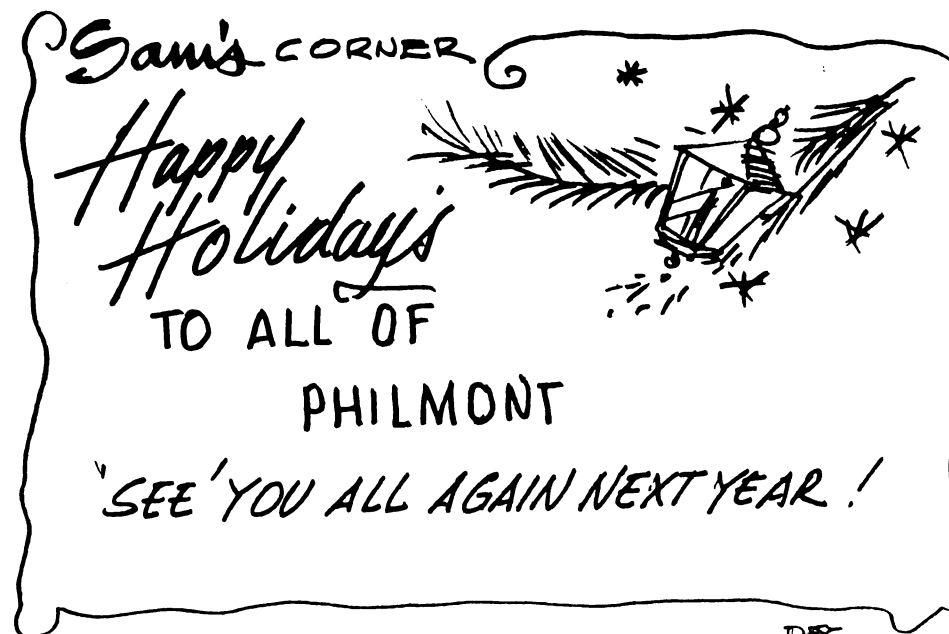 Sam's CORNER
Happy
Holiday's
TO ALL OF
PHILMONT
"SEE" YOU ALL AGAIN NEXT YEAR !